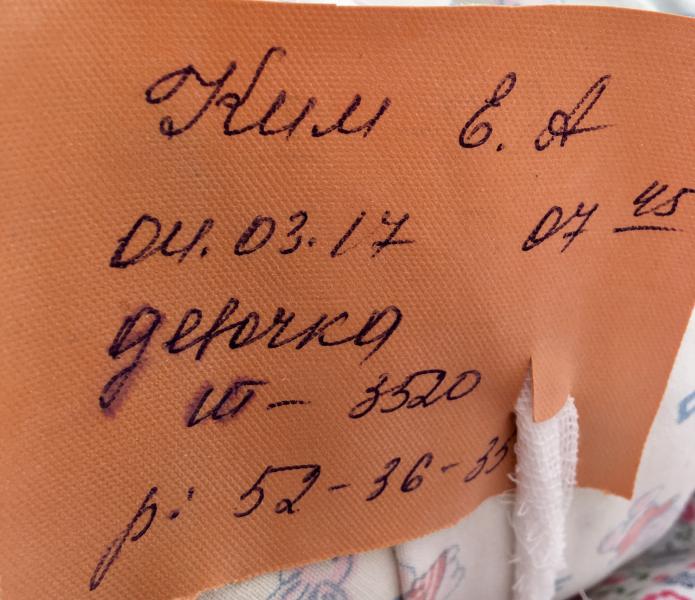 Ким Е. А
04.03.17 07 45
девочка
m - 3520
р: 52-36-35